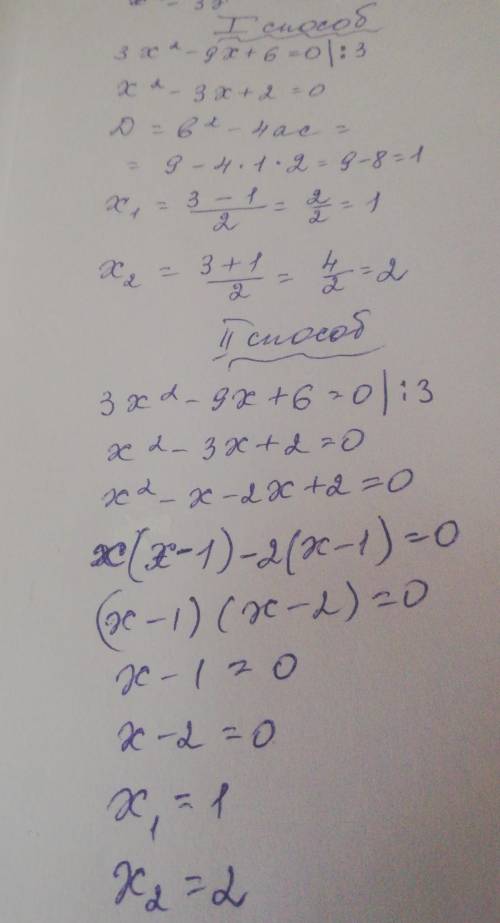 I способ
3x² - 9x + 6 = 0 | : 3
x² - 3x + 2 = 0
D = b² - 4ac =
= 9 - 4 · 1 · 2 = 9 - 8 = 1
x₁ = (3 - 1)/2 = 2/2 = 1
x₂ = (3 + 1)/2 = 4/2 = 2
II способ
3x² - 9x + 6 = 0 | : 3
x² - 3x + 2 = 0
x² - x - 2x + 2 = 0
x(x - 1) - 2(x - 1) = 0
(x - 1)(x - 2) = 0
x - 1 = 0
x - 2 = 0
x₁ = 1
x₂ = 2